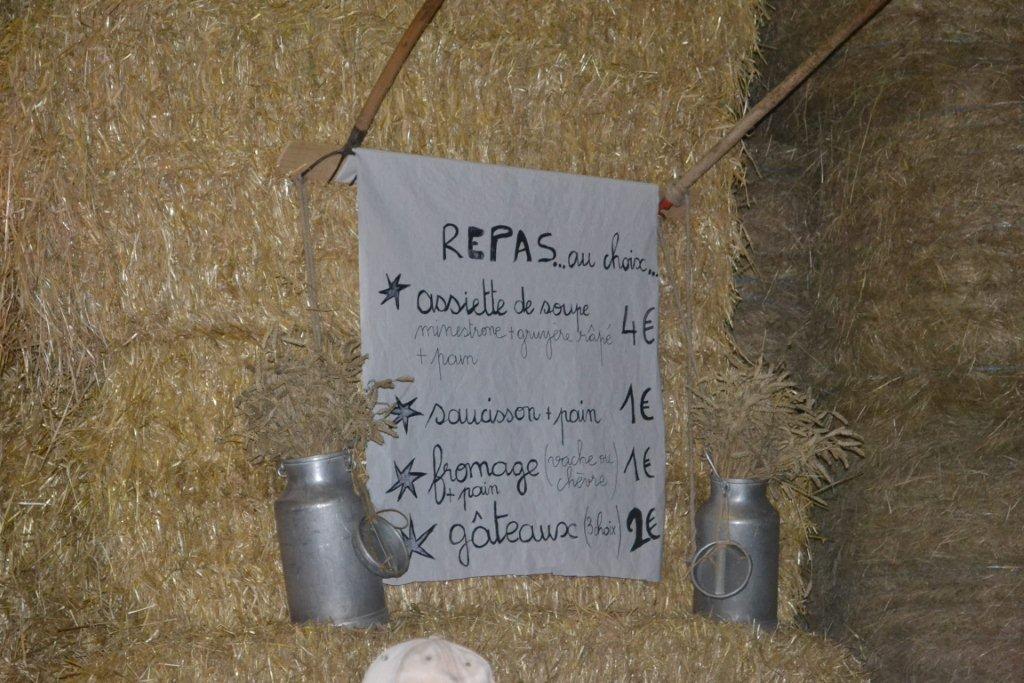 REPAS...au choix...
assiette de soupe 4€
minestrone + gruyère râpé
+ pain
saucisson + pain 1€
fromage (vache ou chèvre) 1€
+ pain
gâteaux (3 choix) 2€